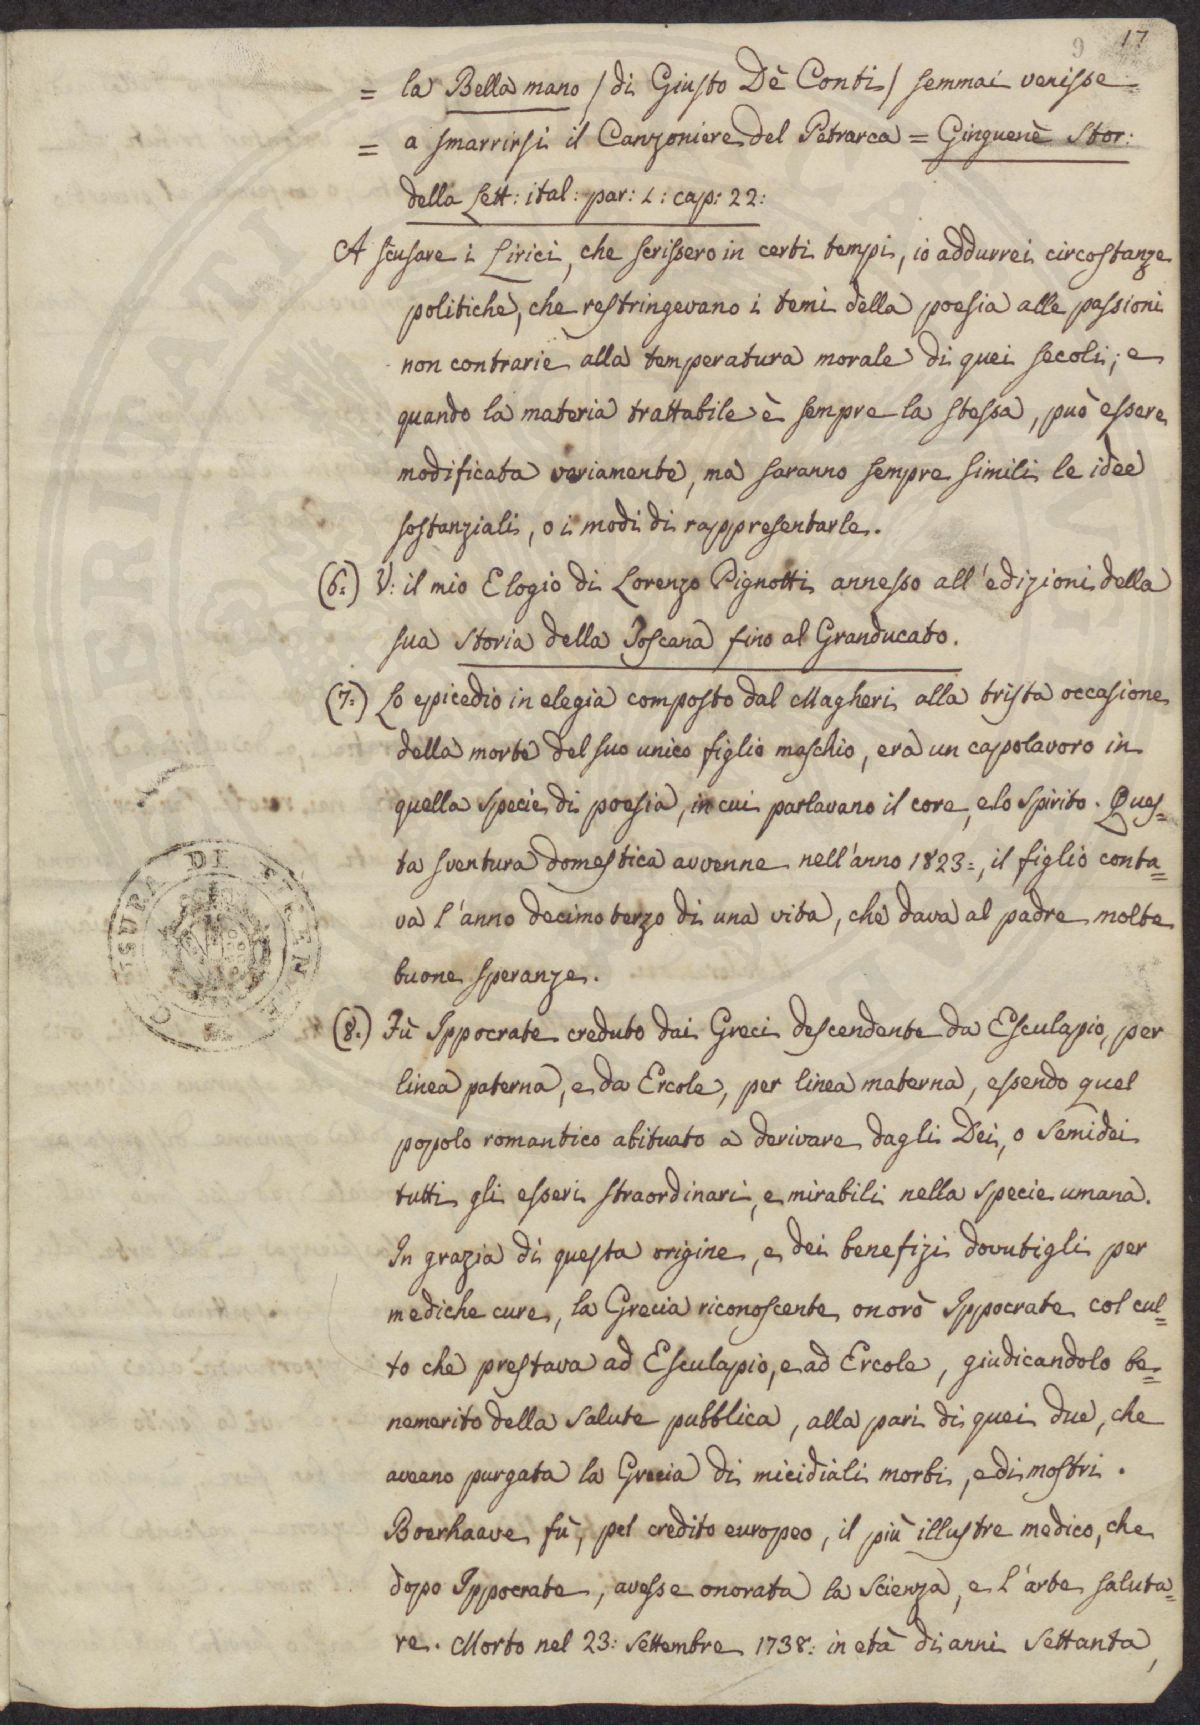 9 17
= la Bella mano / di Giusto Dè Conti / semmai venisse =
= a smarrirsi il Canzoniere del Petrarca = Ginguenè Stor:
della Lett: ital: par: 1: cap: 22:
A scusare i Lirici, che scrissero in certi tempi, io addurrei circostanze
politiche, che restringevano i temi della poesia alle passioni
non contrarie alla temperatura morale di quei secoli; e
quando la materia trattabile è sempre la stessa, può essere
modificata variamente, ma saranno sempre simili le idee
sostanziali, o i modi di rappresentarle.
(6:) V: il mio Elogio di Lorenzo Pignotti annesso all'edizioni della
sua Storia della Toscana fino al Granducato.
(7:) Lo epicedio in elegia composto dal Magheri alla trista occasione
della morte del suo unico figlio maschio, era un capolavoro in
quella specie di poesia, in cui parlavano il core, e lo spirito. Ques=
ta sventura domestica avvenne nell'anno 1823:, il figlio conta=
va l'anno decimoterzo di una vita, che dava al padre molte
buone speranze.
(8:) Fù Ippocrate creduto dai Greci descendente da Esculapio, per
linea paterna, e da Ercole, per linea materna, essendo quel
popolo romantico abituato a derivare dagli Dei, o Semidei
tutti gli esseri straordinari, e mirabili nella specie umana.
In grazia di questa origine, e dei benefizi dovutigli per
mediche cure, la Grecia riconoscente onorò Ippocrate col cul=
to che prestava ad Esculapio, e ad Ercole, giudicandolo be=
nemerito della salute pubblica, alla pari di quei due, che
aveano purgata la Grecia di micidiali morbi, e di mostri.
Boerhaave fù, pel credito europeo, il più illustre medico, che
dopo Ippocrate, avesse onorata la Scienza, e l'arte saluta=
re. Morto nel 23: Settembre 1738: in età di anni Settanta,
CENSURA DI FIRENZE